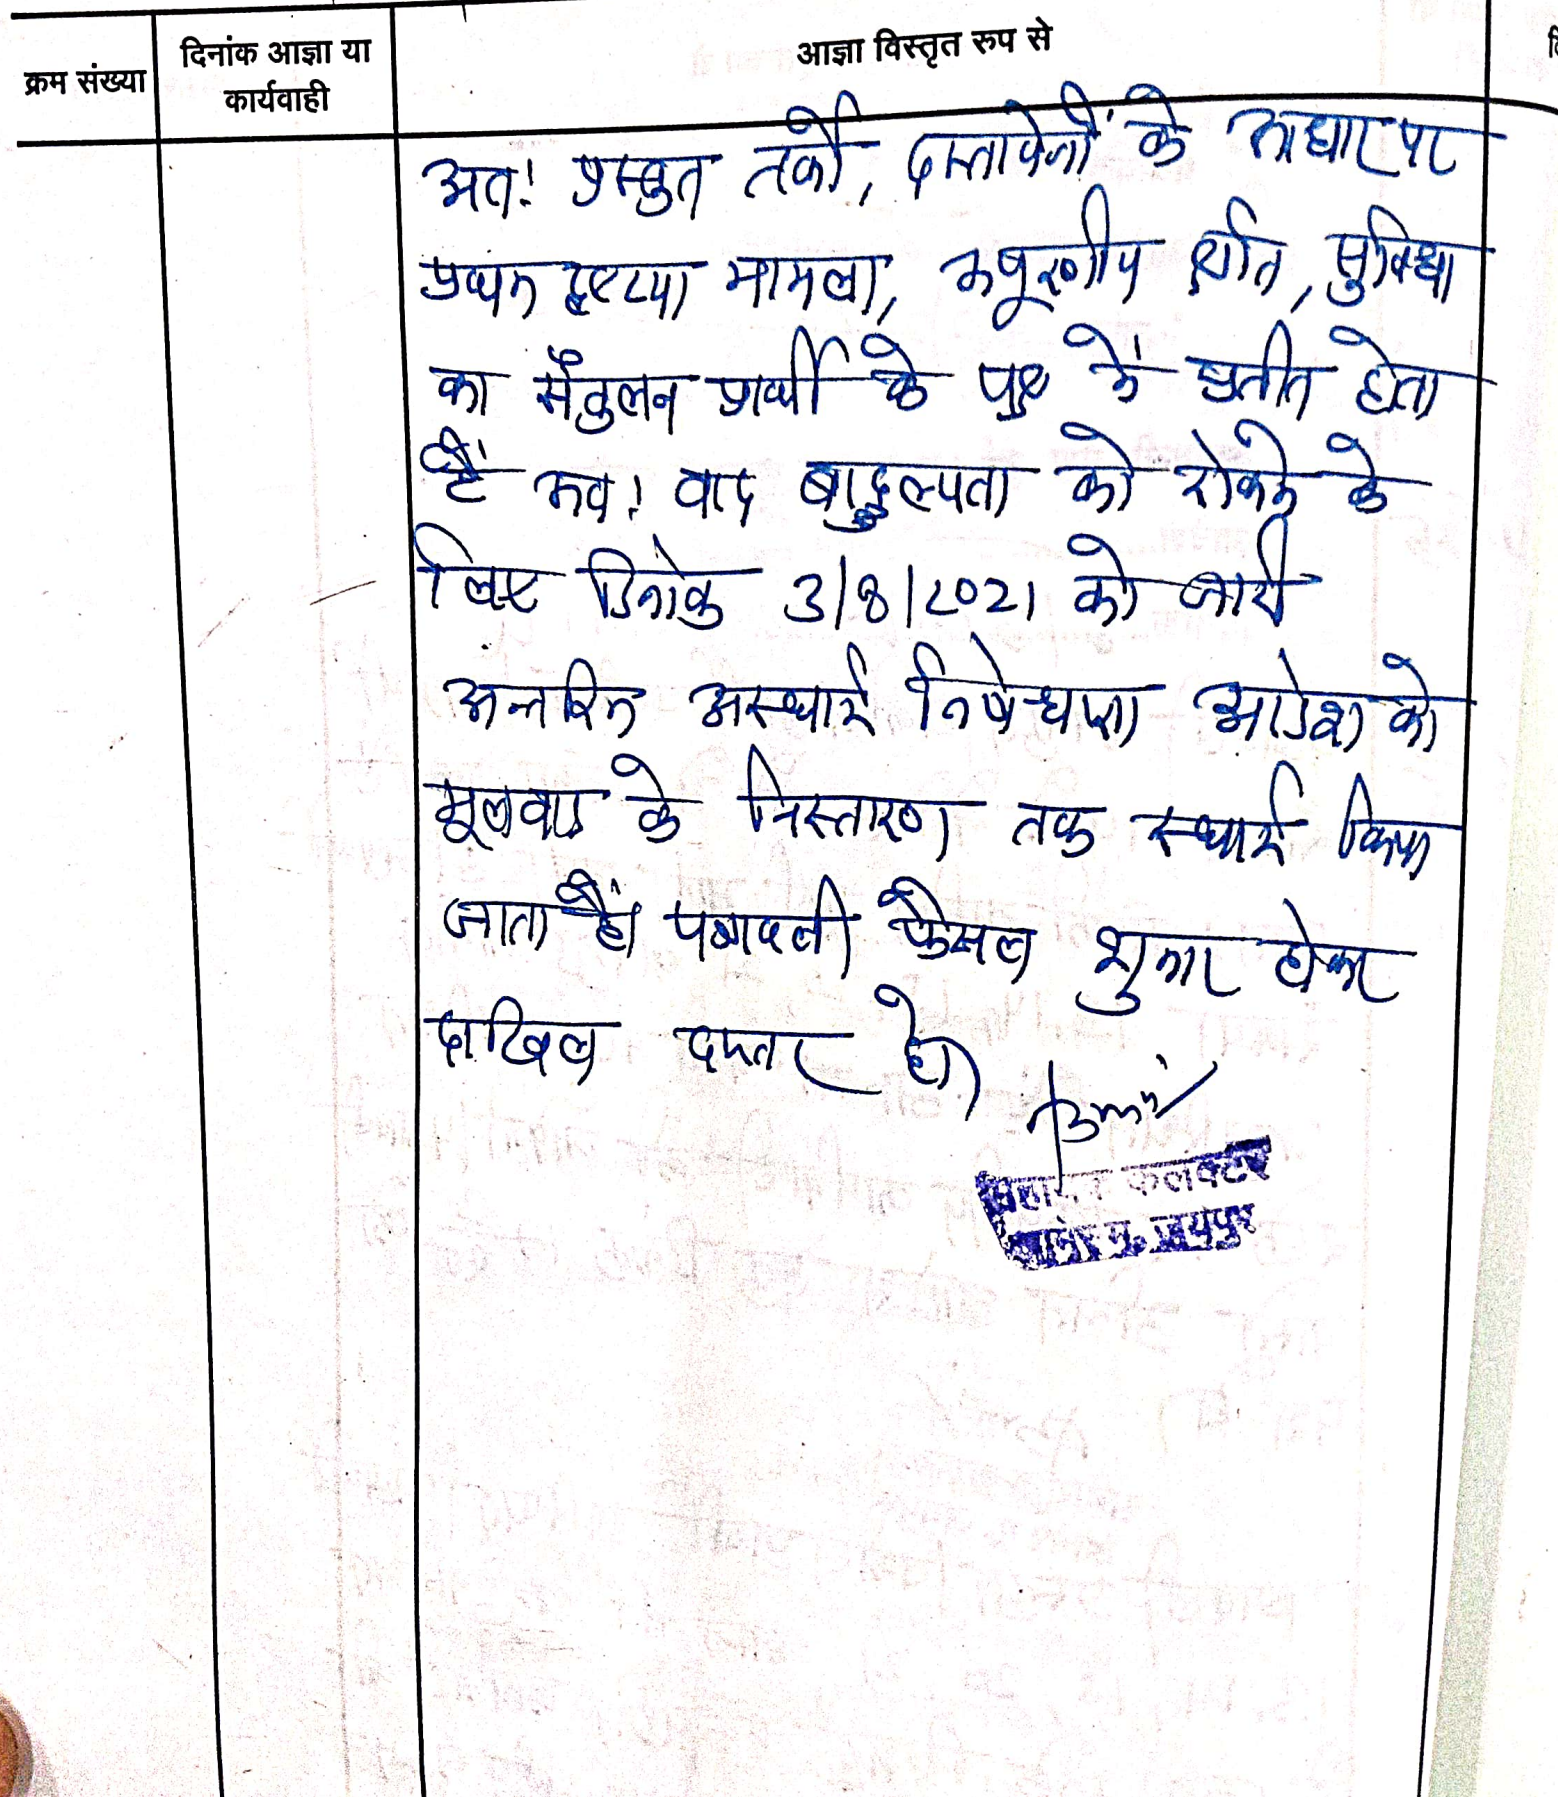 क्रम संख्या
दिनांक आज्ञा या
कार्यवाही
आज्ञा विस्तृत रुप से
अत: प्रस्तुत तर्को, दस्तावेजों के आधार पर
प्रथम दृष्टया मामला, अपूरणीय क्षति, सुविधा
का संतुलन प्रार्थी के पक्ष में प्रतीत होता
है अत: वाद बाहुल्यता को रोकने के
लिए दिनांक 3/8/2021 को जारी
अन्तरिम अस्थाई निषेधाज्ञा आदेश को
मूलवाद के निस्तारण तक स्थाई किया
जाता है। पत्रावली फैसल शुमार होकर
दाखिल दफ्तर हो
सहायक कलक्टर
जयपुर